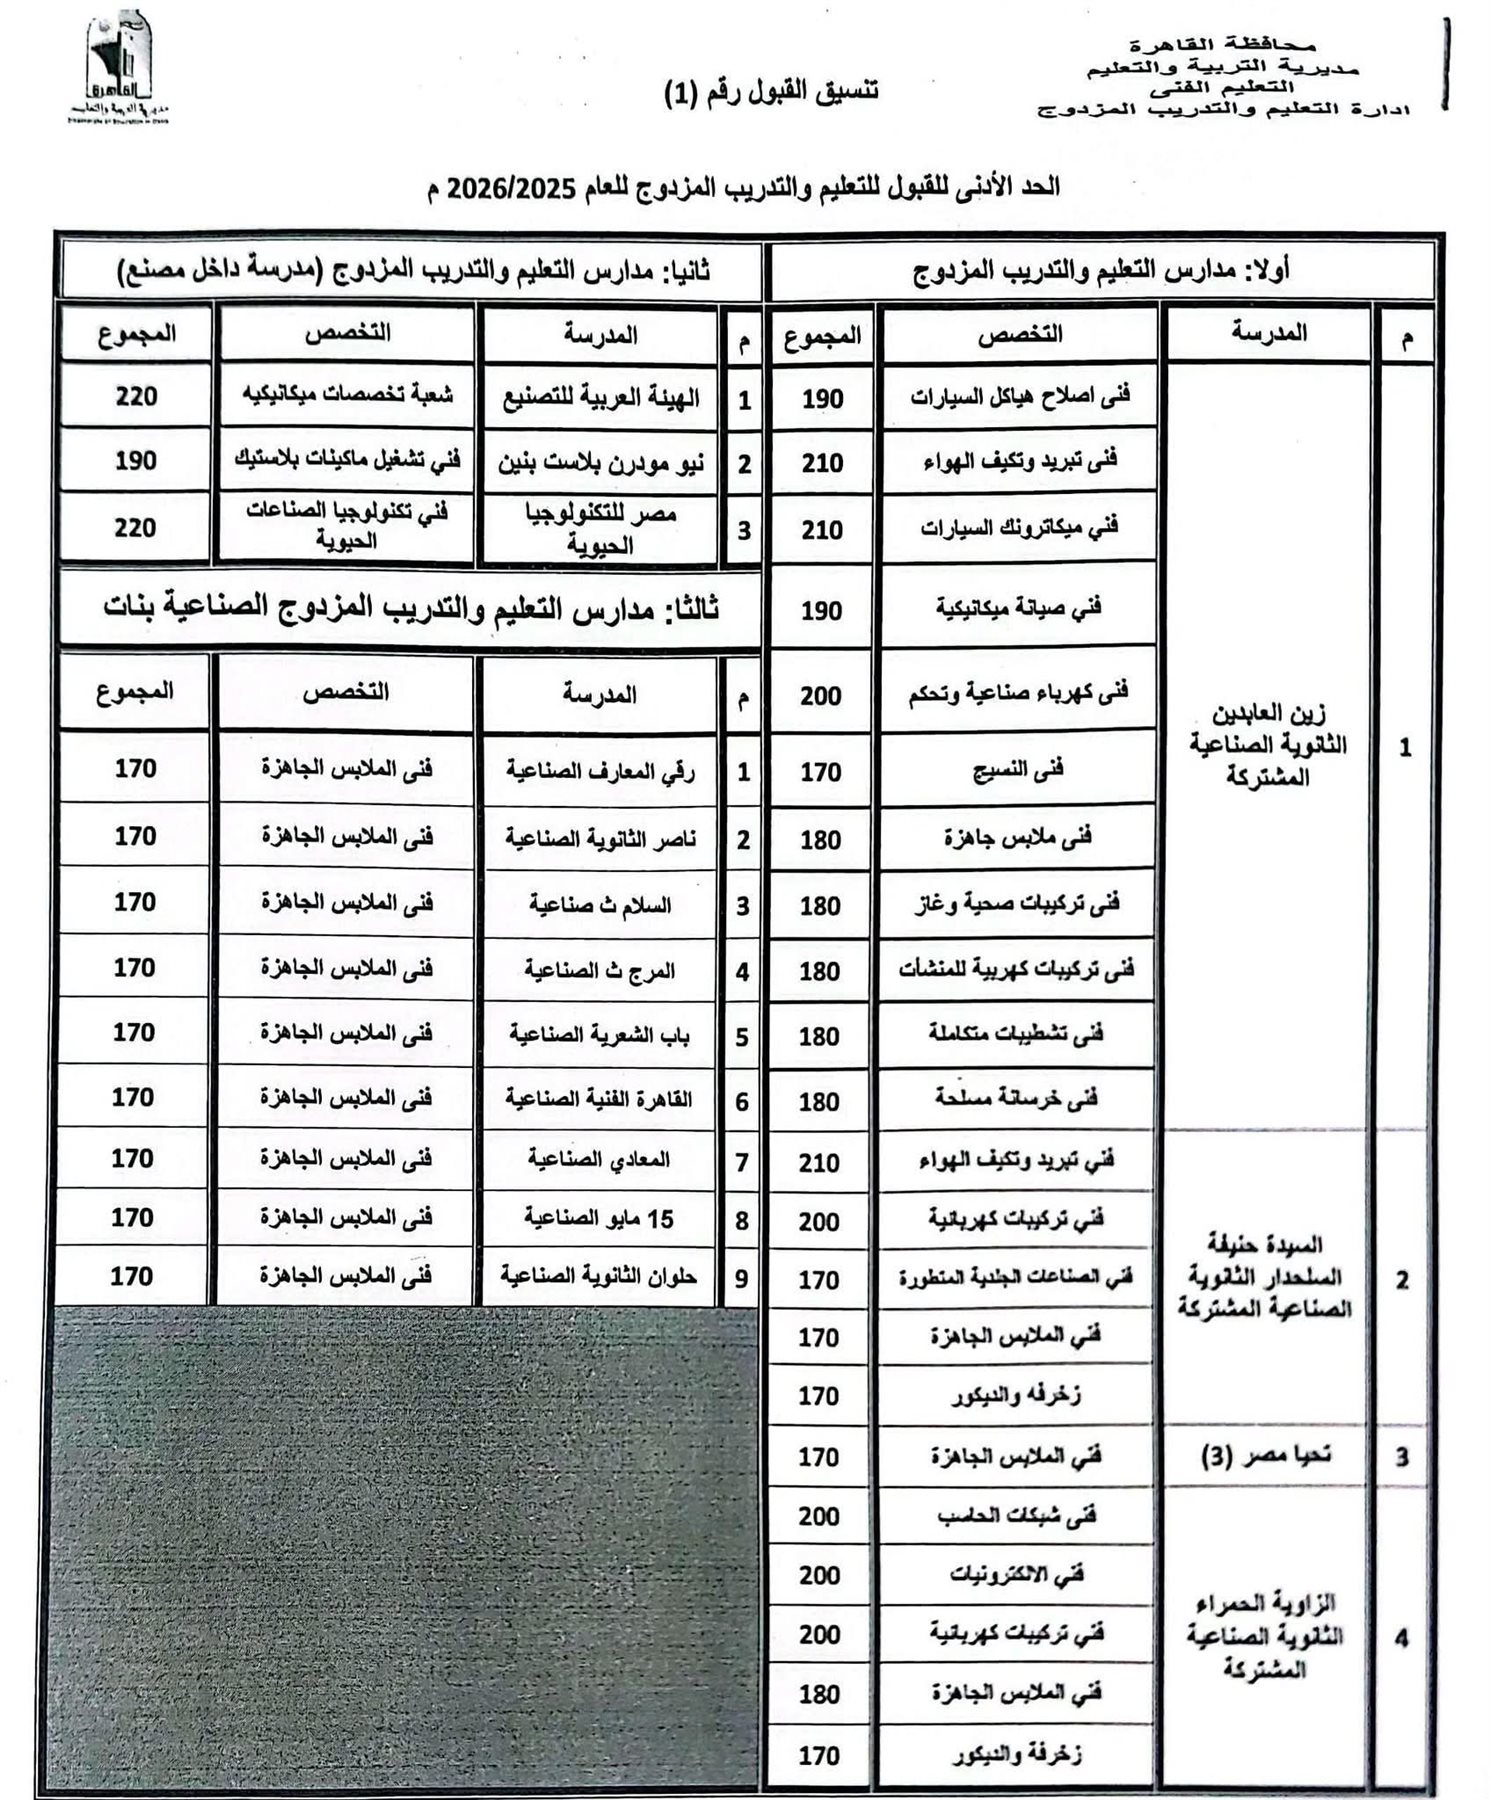 محافظة القاهرة
مديرية التربية والتعليم
التعليم الفنى
ادارة التعليم والتدريب المزدوج
القاهرة
مديرية التربية والتعليم
تنسيق القبول رقم (1)
الحد الأدنى للقبول للتعليم والتدريب المزدوج للعام 2026/2025 م
أولا: مدارس التعليم والتدريب المزدوج
م المدرسة التخصص المجموع
1 زين العابدين الثانوية الصناعية المشتركة
فنى اصلاح هياكل السيارات 190
فنى تبريد وتكيف الهواء 210
فني ميكاترونك السيارات 210
فني صيانة ميكانيكية 190
فنى كهرباء صناعية وتحكم 200
فنى النسيج 170
فنى ملابس جاهزة 180
فنى تركيبات صحية وغاز 180
فنى تركيبات كهربية للمنشأت 180
فنى تشطيبات متكاملة 180
فنى خرسانة مسلحة 180
2 السيدة حنيفة السلحدار الثانوية الصناعية المشتركة
فني تبريد وتكيف الهواء 210
فني تركيبات كهربائية 200
فني الصناعات الجلدية المتطورة 170
فني الملابس الجاهزة 170
زخرفه والديكور 170
3 تحيا مصر (3) فني الملابس الجاهزة 170
4 الزاوية الحمراء الثانوية الصناعية المشتركة
فنى شبكات الحاسب 200
فني الالكترونيات 200
فني تركيبات كهربائية 200
فني الملابس الجاهزة 180
زخرفة والديكور 170
ثانيا: مدارس التعليم والتدريب المزدوج (مدرسة داخل مصنع)
م المدرسة التخصص المجموع
1 الهيئة العربية للتصنيع شعبة تخصصات ميكانيكيه 220
2 نيو مودرن بلاست بنين فني تشغيل ماكينات بلاستيك 190
3 مصر للتكنولوجيا الحيوية فني تكنولوجيا الصناعات الحيوية 220
ثالثا: مدارس التعليم والتدريب المزدوج الصناعية بنات
م المدرسة التخصص المجموع
1 رقي المعارف الصناعية فنى الملابس الجاهزة 170
2 ناصر الثانوية الصناعية فنى الملابس الجاهزة 170
3 السلام ث صناعية فنى الملابس الجاهزة 170
4 المرج ث الصناعية فنى الملابس الجاهزة 170
5 باب الشعرية الصناعية فنى الملابس الجاهزة 170
6 القاهرة الفنية الصناعية فنى الملابس الجاهزة 170
7 المعادي الصناعية فنى الملابس الجاهزة 170
8 15 مايو الصناعية فنى الملابس الجاهزة 170
9 حلوان الثانوية الصناعية فنى الملابس الجاهزة 170